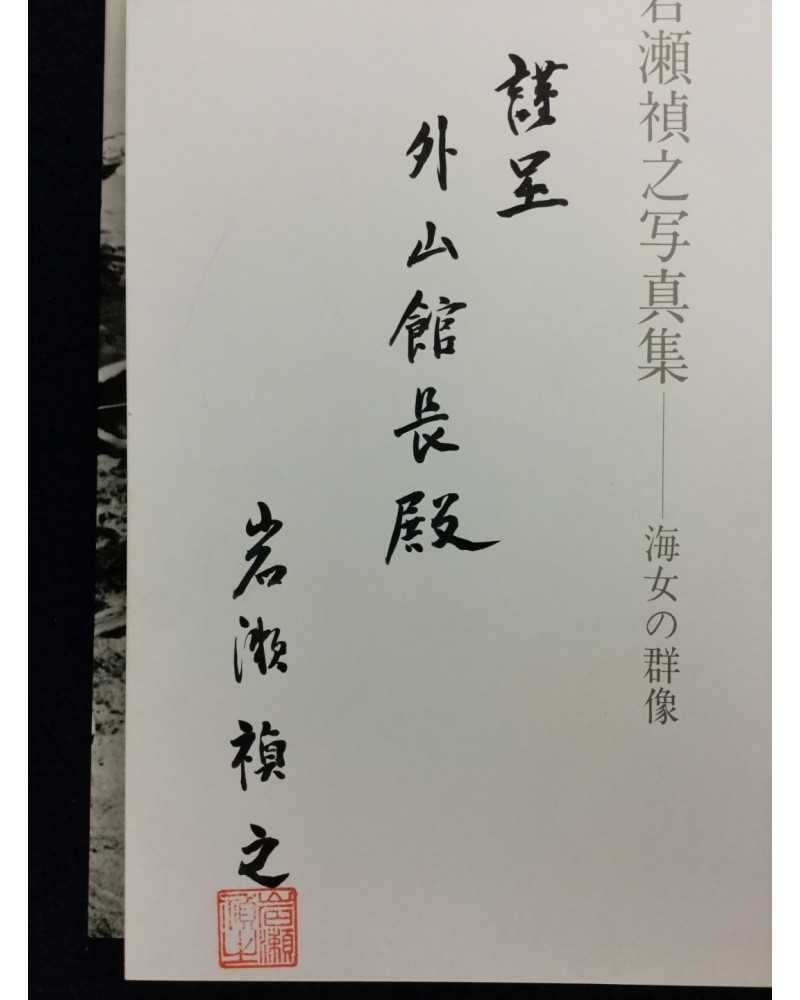 岩瀬禎之写真集——海女の群像
謹呈
外山館長殿
岩瀬禎之
岩瀬禎之